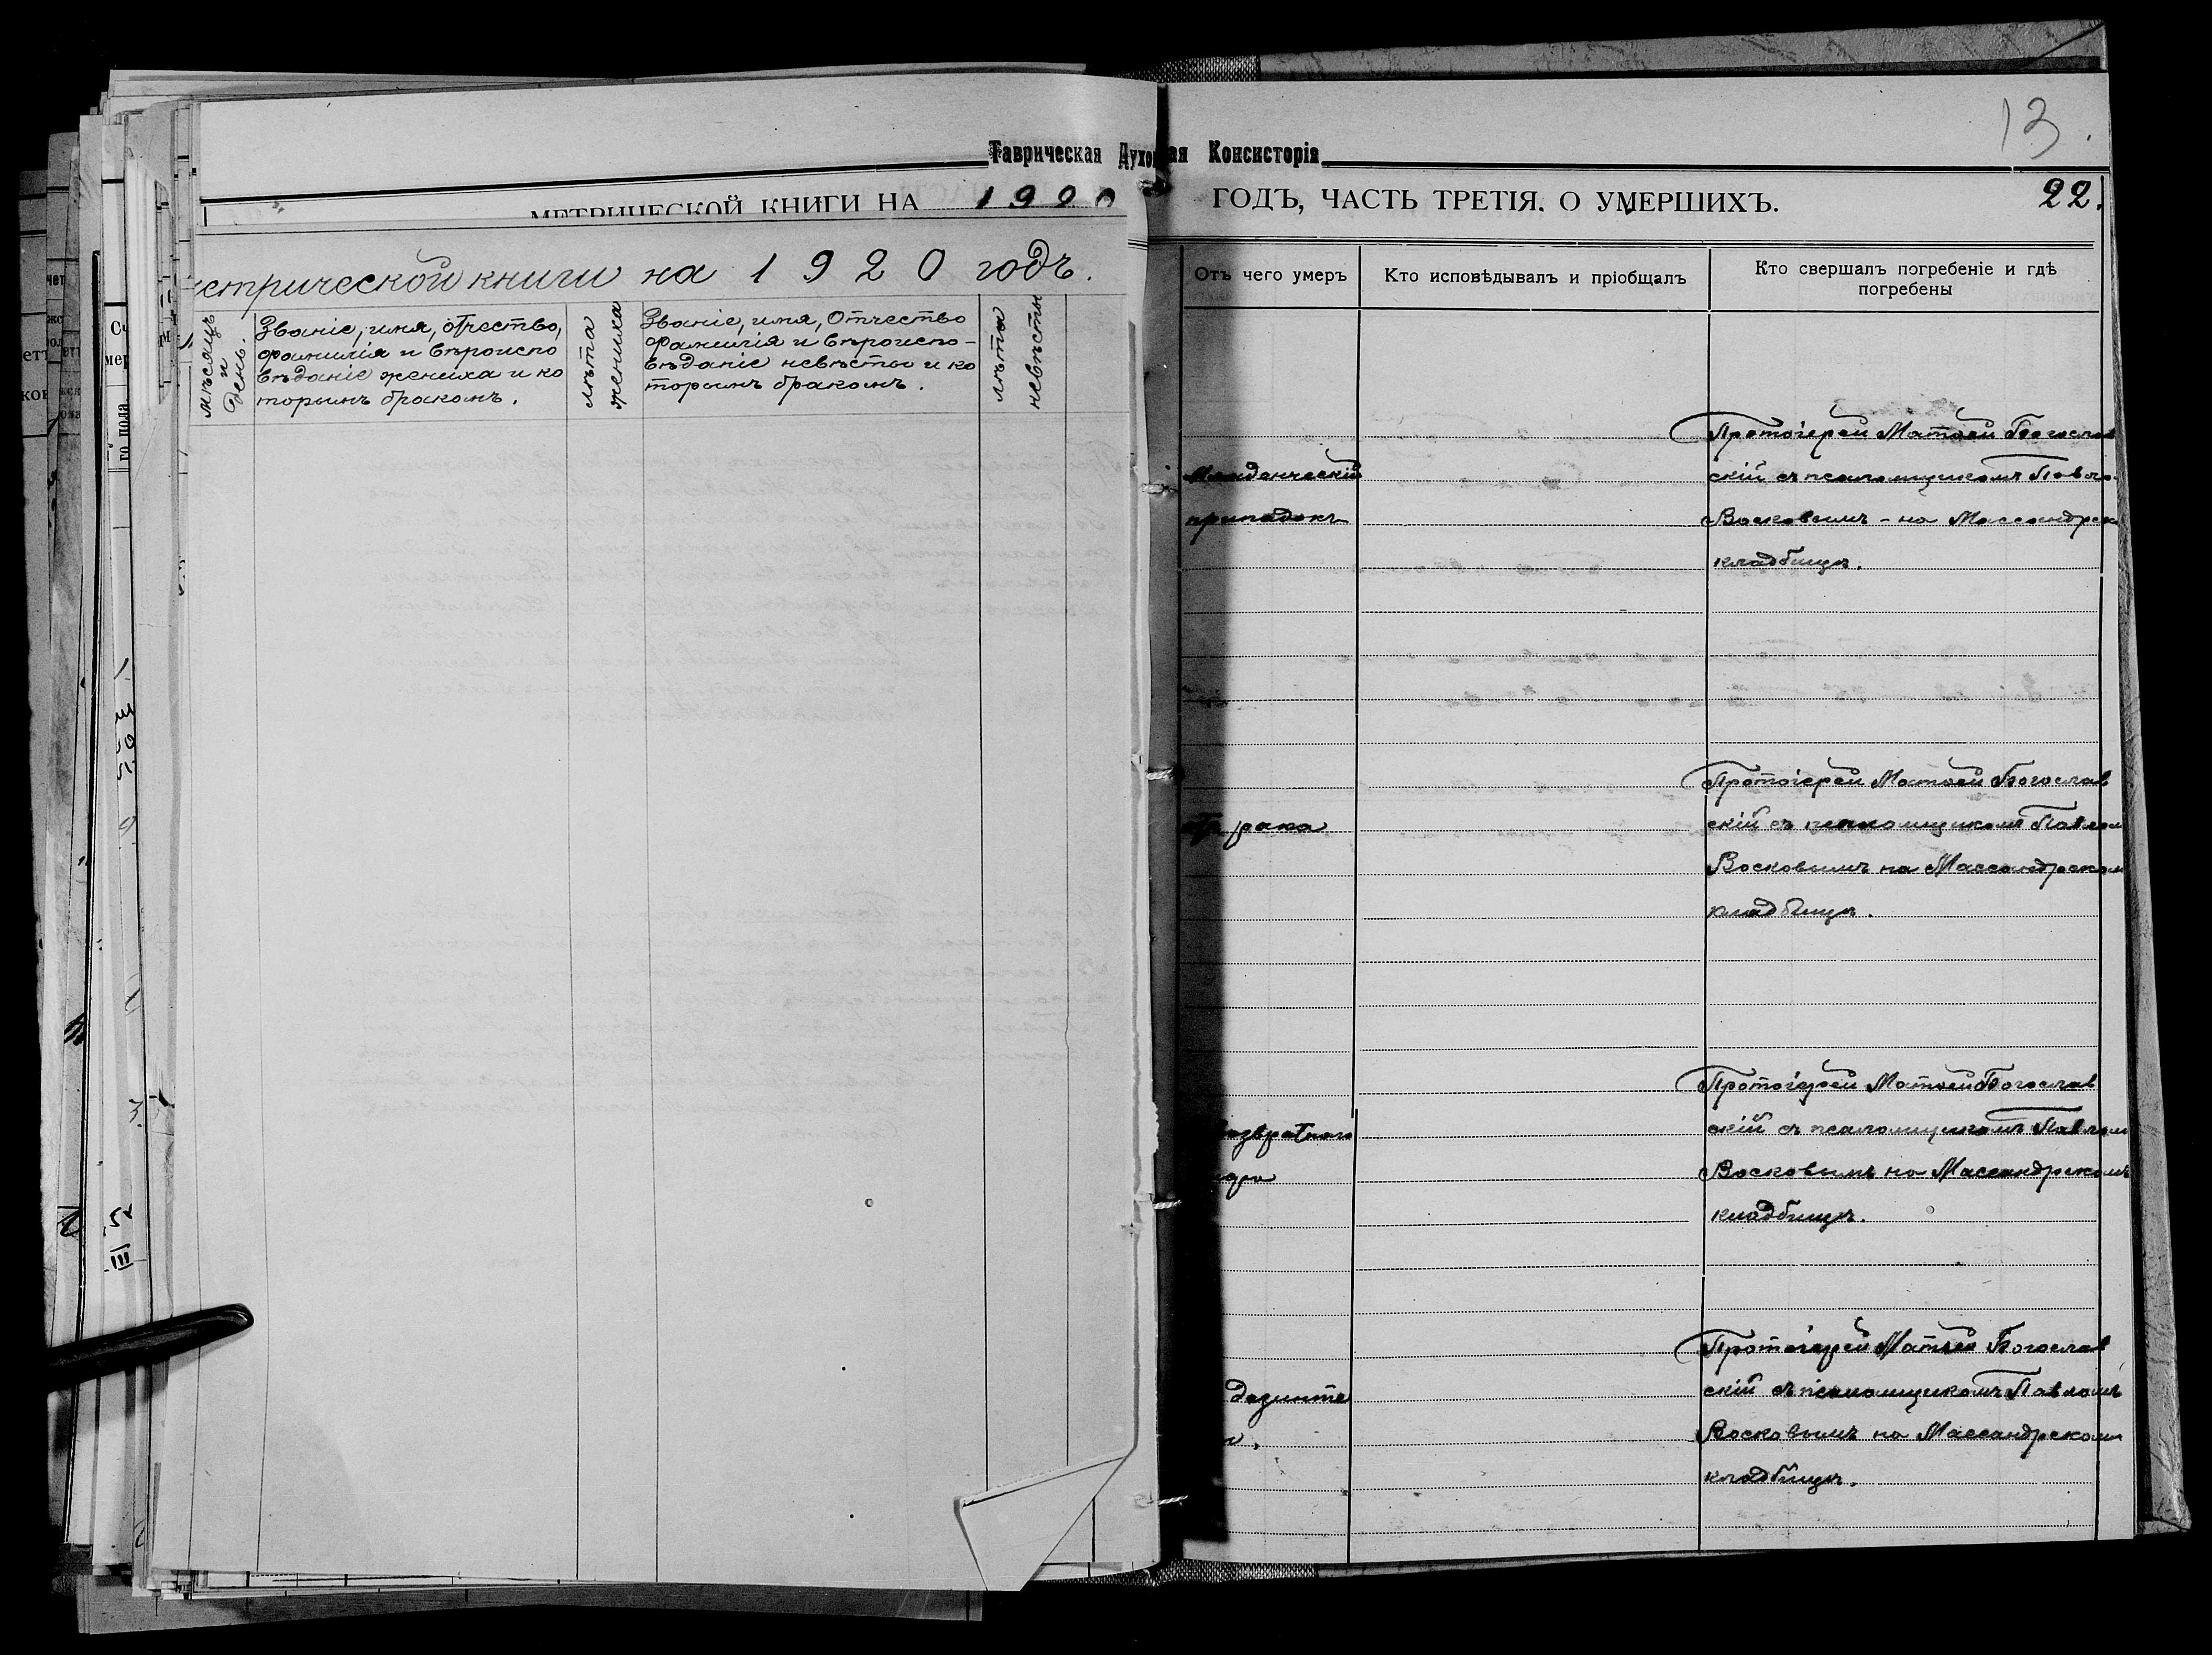 13
Таврическая Духовная Консисторія
МЕТРИЧЕСКОЙ КНИГИ НА 1920
ГОДЪ, ЧАСТЬ ТРЕТІЯ. О УМЕРШИХЪ.
22.
етрической книги на 1920 годъ.
мѣсяцъ и день.
Званіе, имя, отчество,
фамилія и вѣроиспо
вѣданіе жениха и ко
торымъ бракомъ.
лѣта жениха
Званіе, имя, отчество
фамилія и вѣроиспо-
вѣданіе невѣсты и ко
торымъ бракомъ.
лѣта невѣсты
Отъ чего умеръ
Кто исповѣдывалъ и пріобщалъ
Кто свершалъ погребеніе и гдѣ
погребены
Младенческій
припадокъ
Протоіерей Матѳей Богослов
скій съ псаломщикомъ Павло
Восковымъ - на Массандрск
кладбищѣ.
отъ рака
Протоіерей Матѳей Богослав
скій съ псаломщикомъ Павлом
Восковымъ на Массандрском
кладбищѣ.
возвратнаго
Протоіерей Матѳей Богослав
скій съ псаломщикомъ Павлом
Восковымъ на Массандрскомъ
кладбищѣ.
дезинте
Протоіерей Матѳей Богослав
скій съ псаломщикомъ Павломъ
Восковымъ на Массандрском
кладбищѣ.